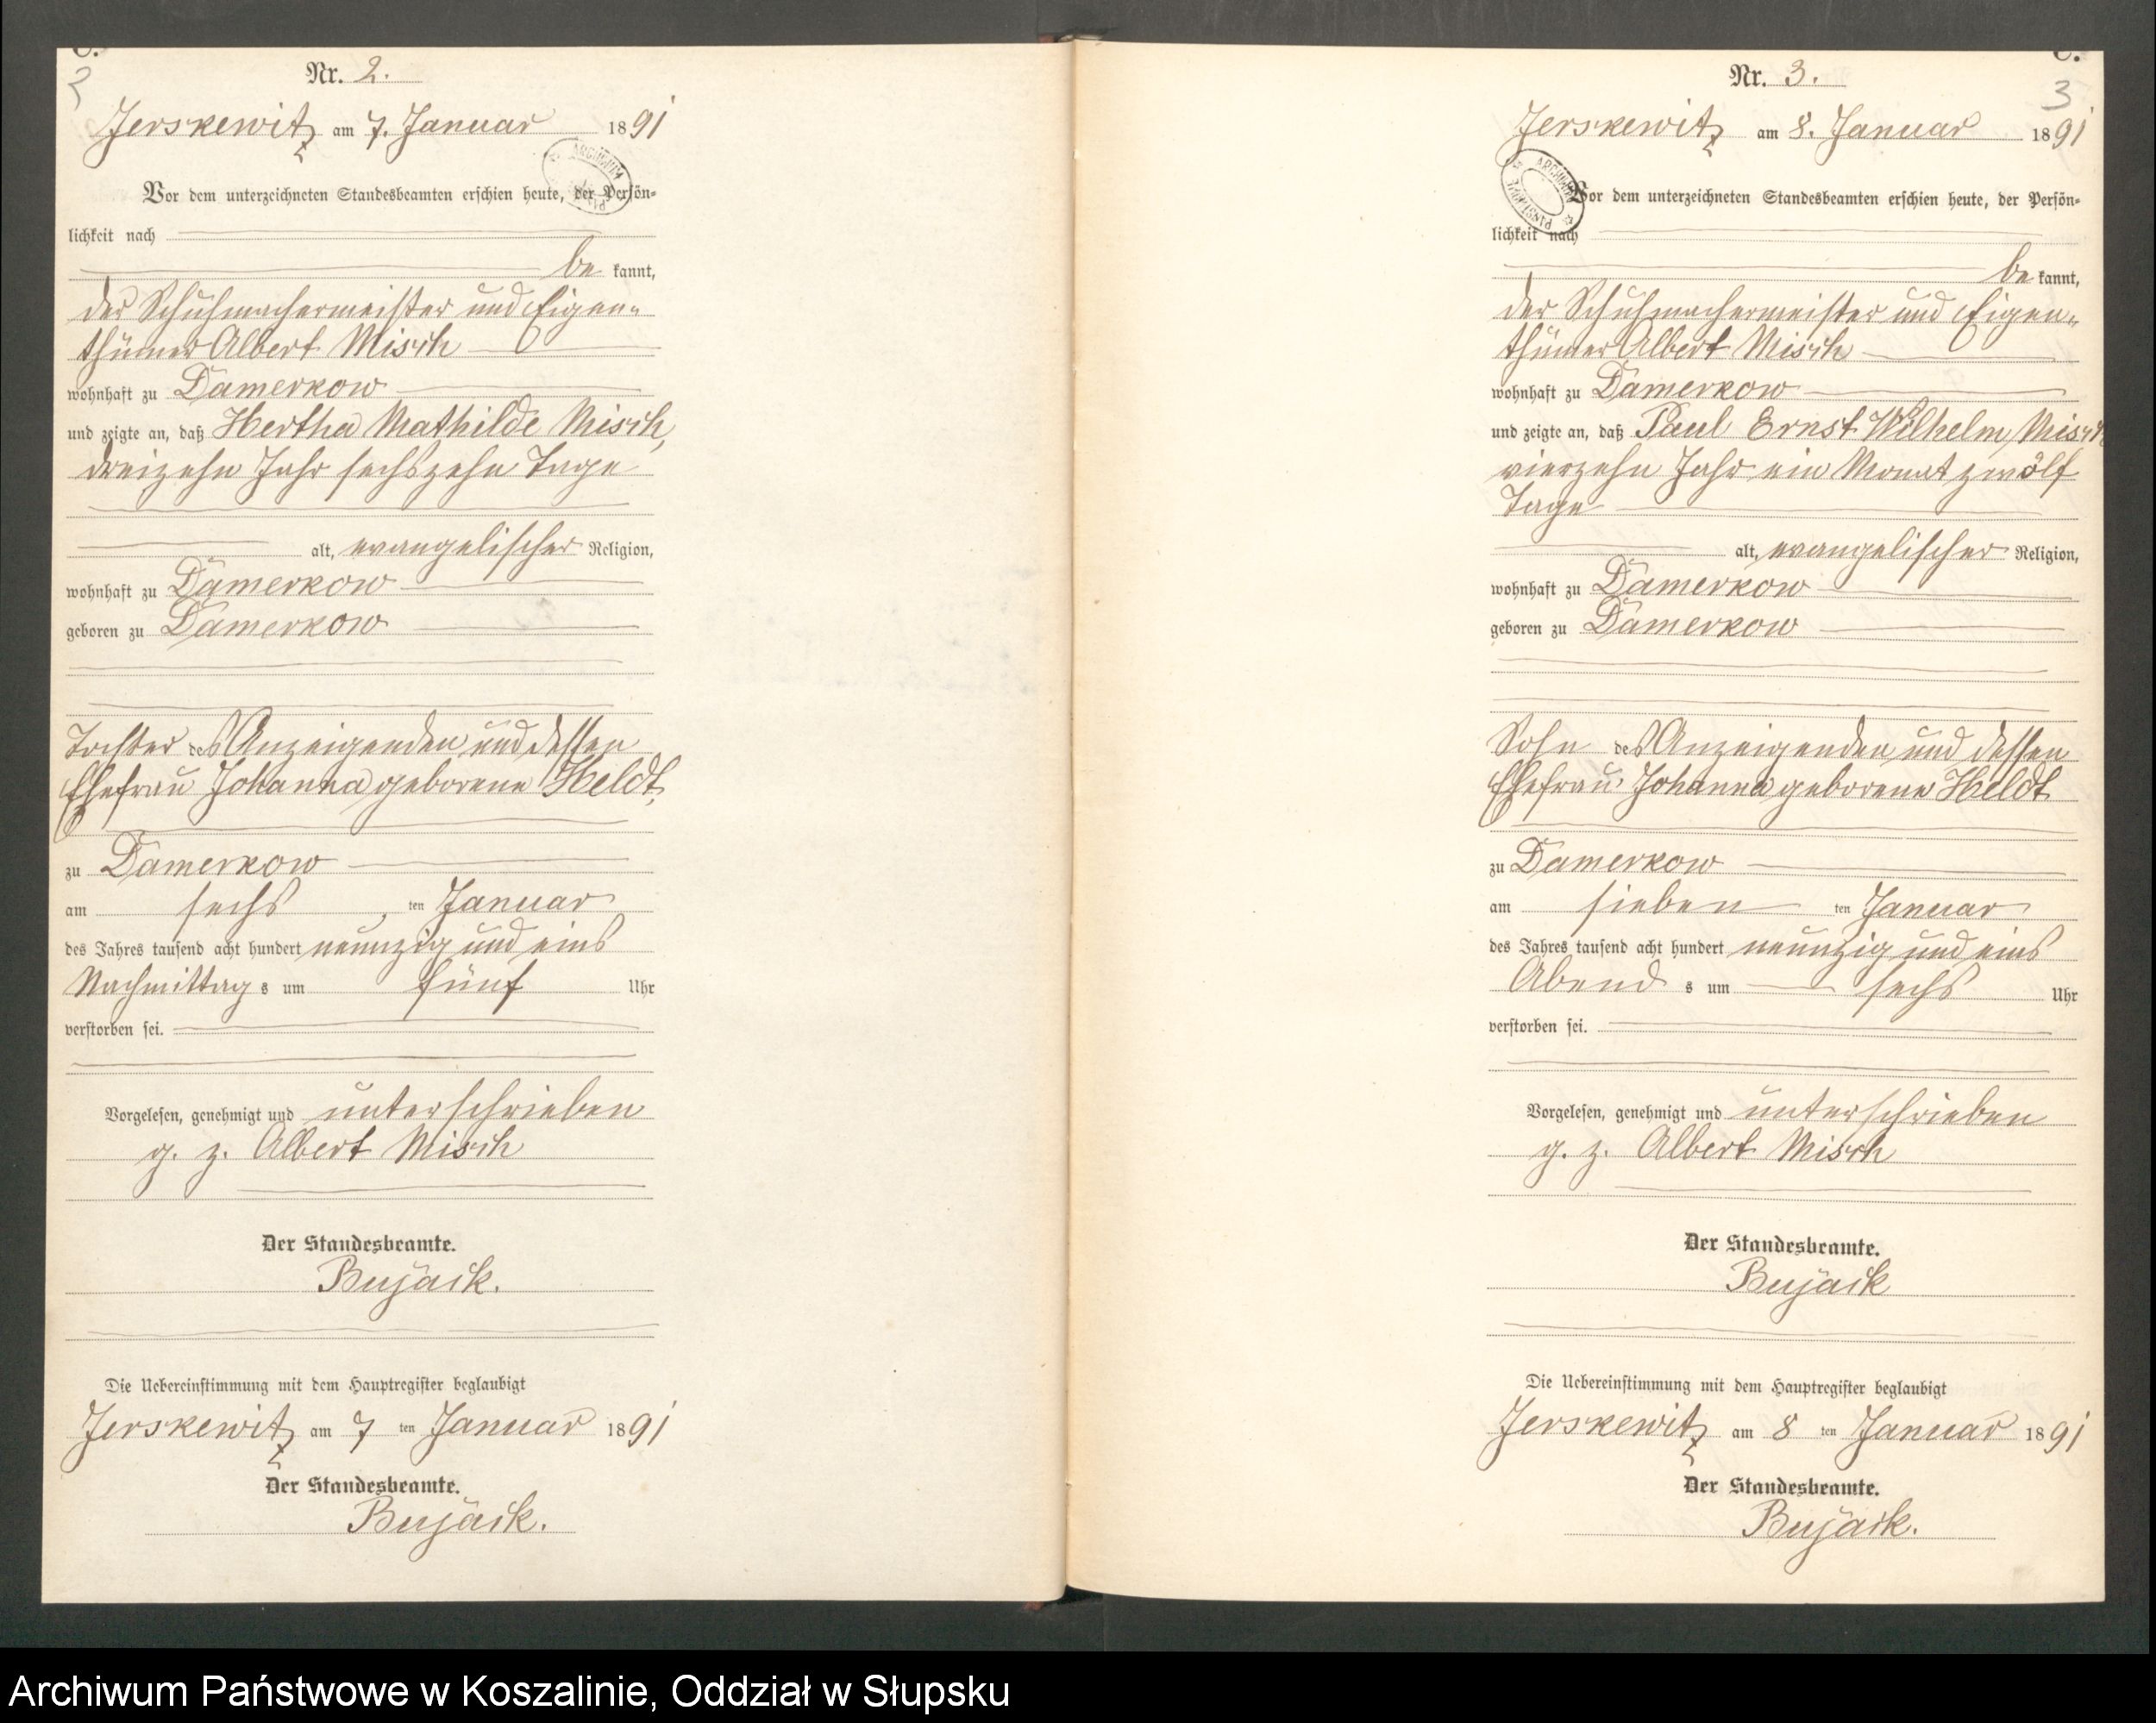 C.
2
Nr. 2.
Jerskewitz am 7. Januar 1891
Vor dem unterzeichneten Standesbeamten erschien heute, der Persön-
lichkeit nach
be kannt,
der Schuhmachermeister und Eigen-
thümer Albert Misch
wohnhaft zu Damerkow
und zeigte an, daß Hertha Mathilde Misch,
dreizehn Jahr sechszehn Tage
alt, evangelischer Religion,
wohnhaft zu Damerkow
geboren zu Damerkow
Tochter des Anzeigenden und dessen
Ehefrau Johanna geborene Heldt,
zu Damerkow
am sechs ten Januar
des Jahres tausend acht hundert neunzig und eins
Nachmittag s um fünf Uhr
verstorben sei.
Vorgelesen, genehmigt und unterschrieben
g. z. Albert Misch
Der Standesbeamte.
Bujack.
Die Uebereinstimmung mit dem Hauptregister beglaubigt
Jerskewitz am 7 ten Januar 1891
Der Standesbeamte.
Bujack.
ARCHIWUM
C.
3
Nr. 3.
Jerskewitz am 8. Januar 1891
ARCHIWUM PAŃSTWOWE
Vor dem unterzeichneten Standesbeamten erschien heute, der Persön-
lichkeit nach
be kannt,
der Schuhmachermeister und Eigen-
thümer Albert Misch
wohnhaft zu Damerkow
und zeigte an, daß Paul Ernst Wilhelm Misch
vierzehn Jahr ein Monat zwölf
Tage
alt, evangelischer Religion,
wohnhaft zu Damerkow
geboren zu Damerkow
Sohn des Anzeigenden und dessen
Ehefrau Johanna geborene Heldt
zu Damerkow
am sieben ten Januar
des Jahres tausend acht hundert neunzig und eins
Abend s um sechs Uhr
verstorben sei.
Vorgelesen, genehmigt und unterschrieben
g. z. Albert Misch
Der Standesbeamte.
Bujack
Die Uebereinstimmung mit dem Hauptregister beglaubigt
Jerskewitz am 8 ten Januar 1891
Der Standesbeamte.
Bujack.
Archiwum Państwowe w Koszalinie, Oddział w Słupsku